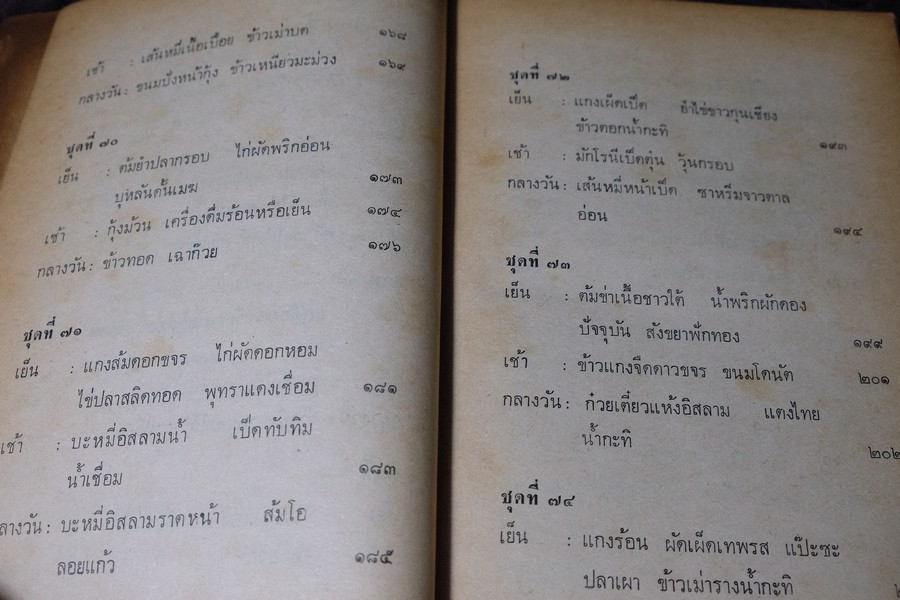 เช้า : เส้นหมี่เนื้อเปื่อย ข้าวเม่าบด ๑๖๘
กลางวัน : ขนมปังหน้ากุ้ง ข้าวเหนียวมะม่วง ๑๖๙
ชุดที่ ๗๐
เย็น : ต้มยำปลากรอบ ไก่ผัดพริกอ่อน
บุหลันดั้นเมฆ ๑๗๓
เช้า : กุ้งม้วน เครื่องดื่มร้อนหรือเย็น ๑๗๔
กลางวัน : ข้าวทอด เฉาก๊วย ๑๗๖
ชุดที่ ๗๑
เย็น : แกงส้มดอกขจร ไก่ผัดดอกหอม
ไข่ปลาสลิดทอด พุทราแดงเชื่อม ๑๘๑
เช้า : บะหมี่อิสลามน้ำ เป็ดทับทิม
น้ำเชื่อม ๑๘๓
ลางวัน : บะหมี่อิสลามราดหน้า ส้มโอ
ลอยแก้ว ๑๘๕
ชุดที่ ๗๒
เย็น : แกงเผ็ดเป็ด ยำไข่ขาวกุนเชียง
ข้าวตอกน้ำกะทิ ๑๙๓
เช้า : มักโรนีเป็ดตุ๋น วุ้นกรอบ
กลางวัน : เส้นหมี่หน้าเป็ด ซาหริ่มจาวตาล
อ่อน ๑๙๔
ชุดที่ ๗๓
เย็น : ต้มข่าเนื้อชาวใต้ น้ำพริกผักดอง
ปัจจุบัน สังขยาฟักทอง ๑๙๙
เช้า : ข้าวแกงจืดดาวขจร ขนมโดนัต ๒๐๑
กลางวัน : ก๋วยเตี๋ยวแห้งอิสลาม แตงไทย
น้ำกะทิ ๒๐๒
ชุดที่ ๗๔
เย็น : แกงร้อน ผัดเผ็ดเทพรส แป๊ะซะ
ปลาเผา ข้าวเม่ารางน้ำกะทิ